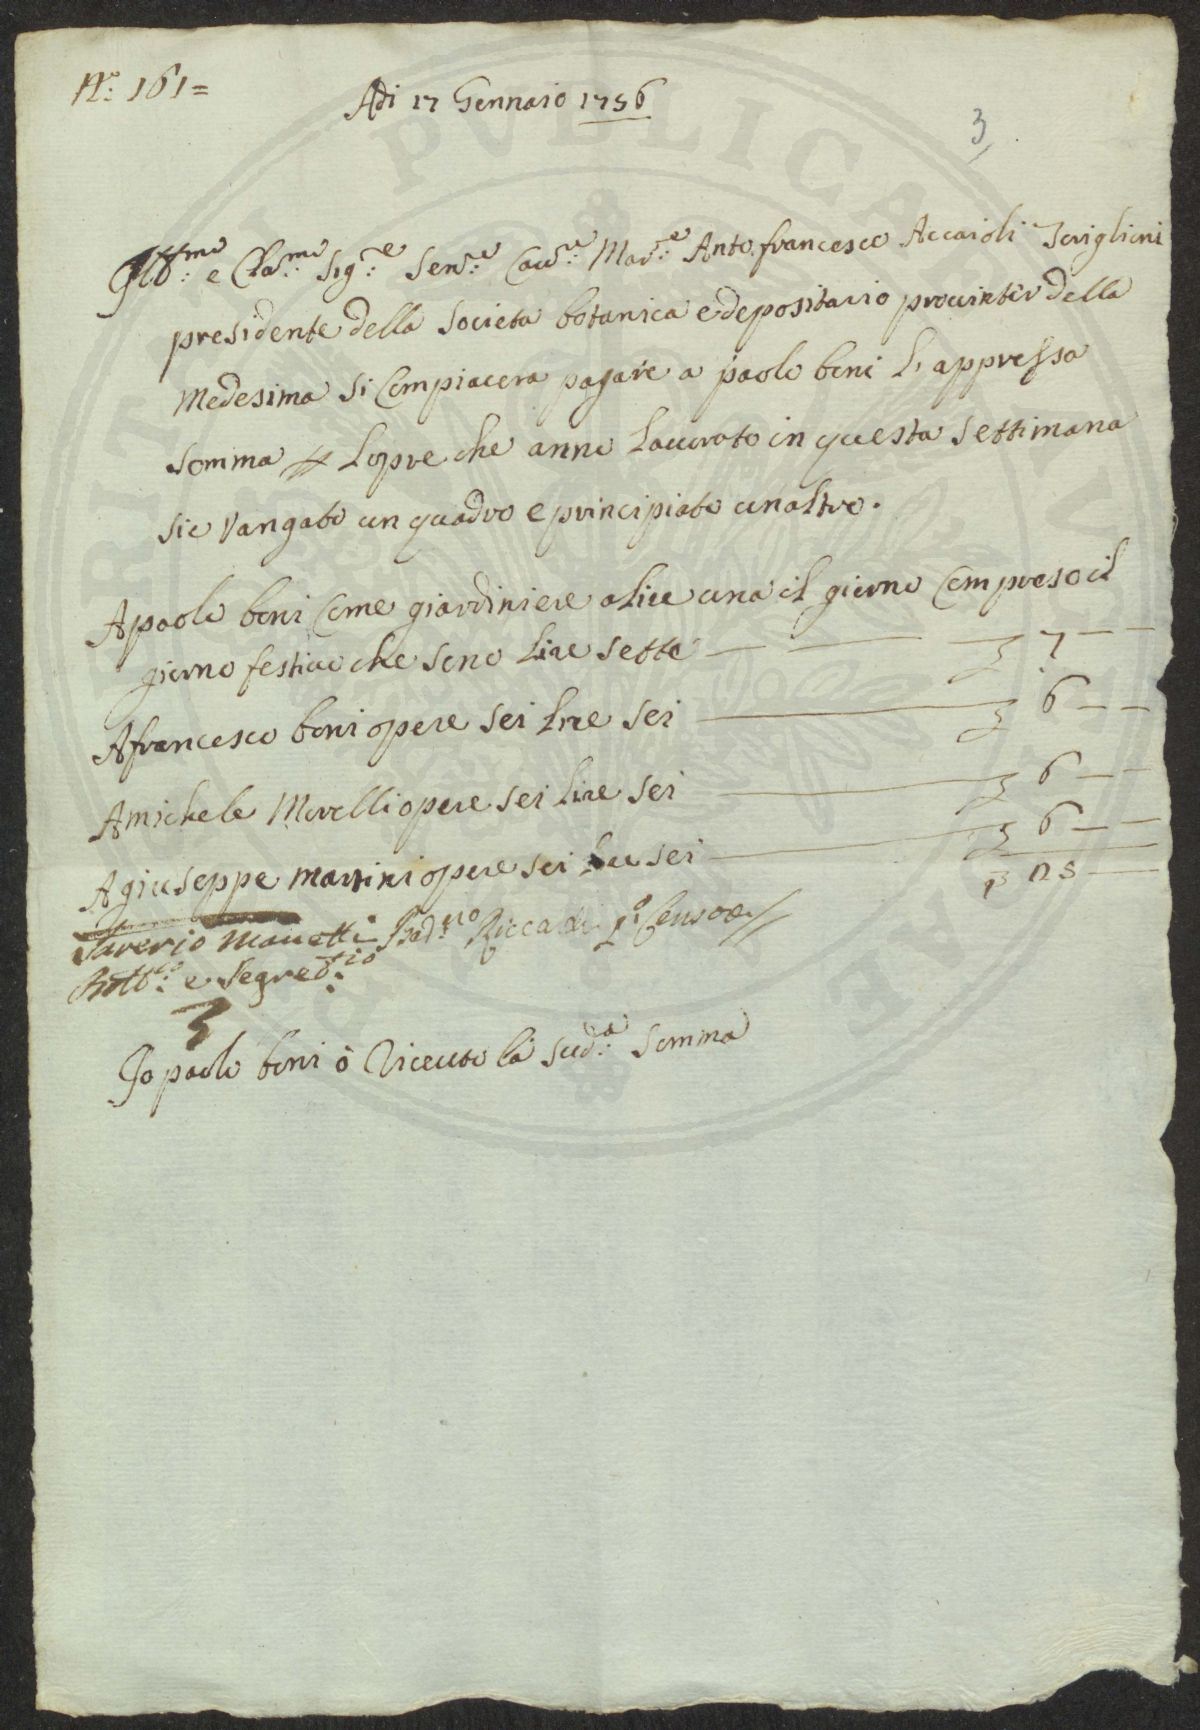 N.º 161=
Adi 17 Gennaio 1756
3
Ill.mo e Cla.mo Sig.e Sen.e Cau.e Mar.e Anto.francesco Accaioli
presidente della Societa botanica e depositario prouinter della
Medesima Si Compiacera pagare a paolo boni L appressa
Somma Lopre che anno Lauorato in questa Settimana
Sie Vangato un quadro e principiato unaltro.
Apaolo boni Come giardiniere a Lire una il giorno Compreso il
giorno festiuo che sono Lire Sette 7
Afrancesco boni opere Sei Lire Sei 6
Amichele Morelli opere Sei Lire Sei 6
Agiuseppe martini opere Sei Lire Sei 6
25
Saverio Manetti Bad.rro Riccardi p.º Censore
Bott.co e Segret.rio
Jo paolo boni ò Riceuto la Sud.a Somma
PVBLICAE